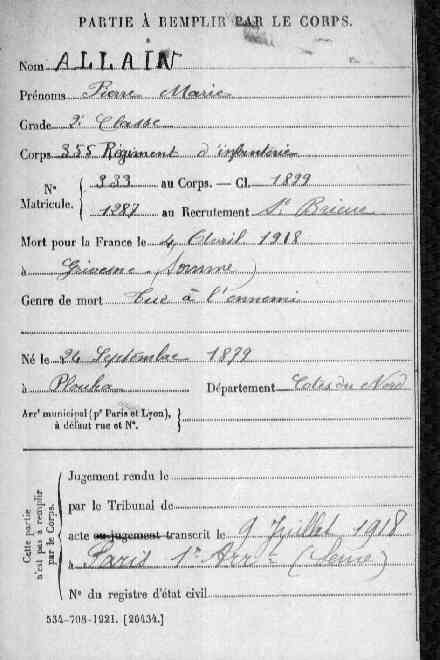 PARTIE À REMPLIR PAR LE CORPS.
Nom ALLAIN
Prénoms Pierre Marie
Grade 2e Classe
Corps 355 Régiment d'infanterie
N° Matricule. { 333 au Corps. — Cl. 1899
1287 au Recrutement St Brieuc
Mort pour la France le 4 Avril 1918
à Grivesne (Somme)
Genre de mort Tué à l'ennemi
Né le 26 Septembre 1879
à Plouha Département Côtes du Nord
Arrt municipal (pr Paris et Lyon), à défaut rue et N°. }
Cette partie n'est pas à remplir par le Corps.
Jugement rendu le
par le Tribunal de
acte ou jugement transcrit le 9 Juillet 1918
à Paris 1er Arrt (Seine)
N° du registre d'état civil
534-708-1921. [26434.]